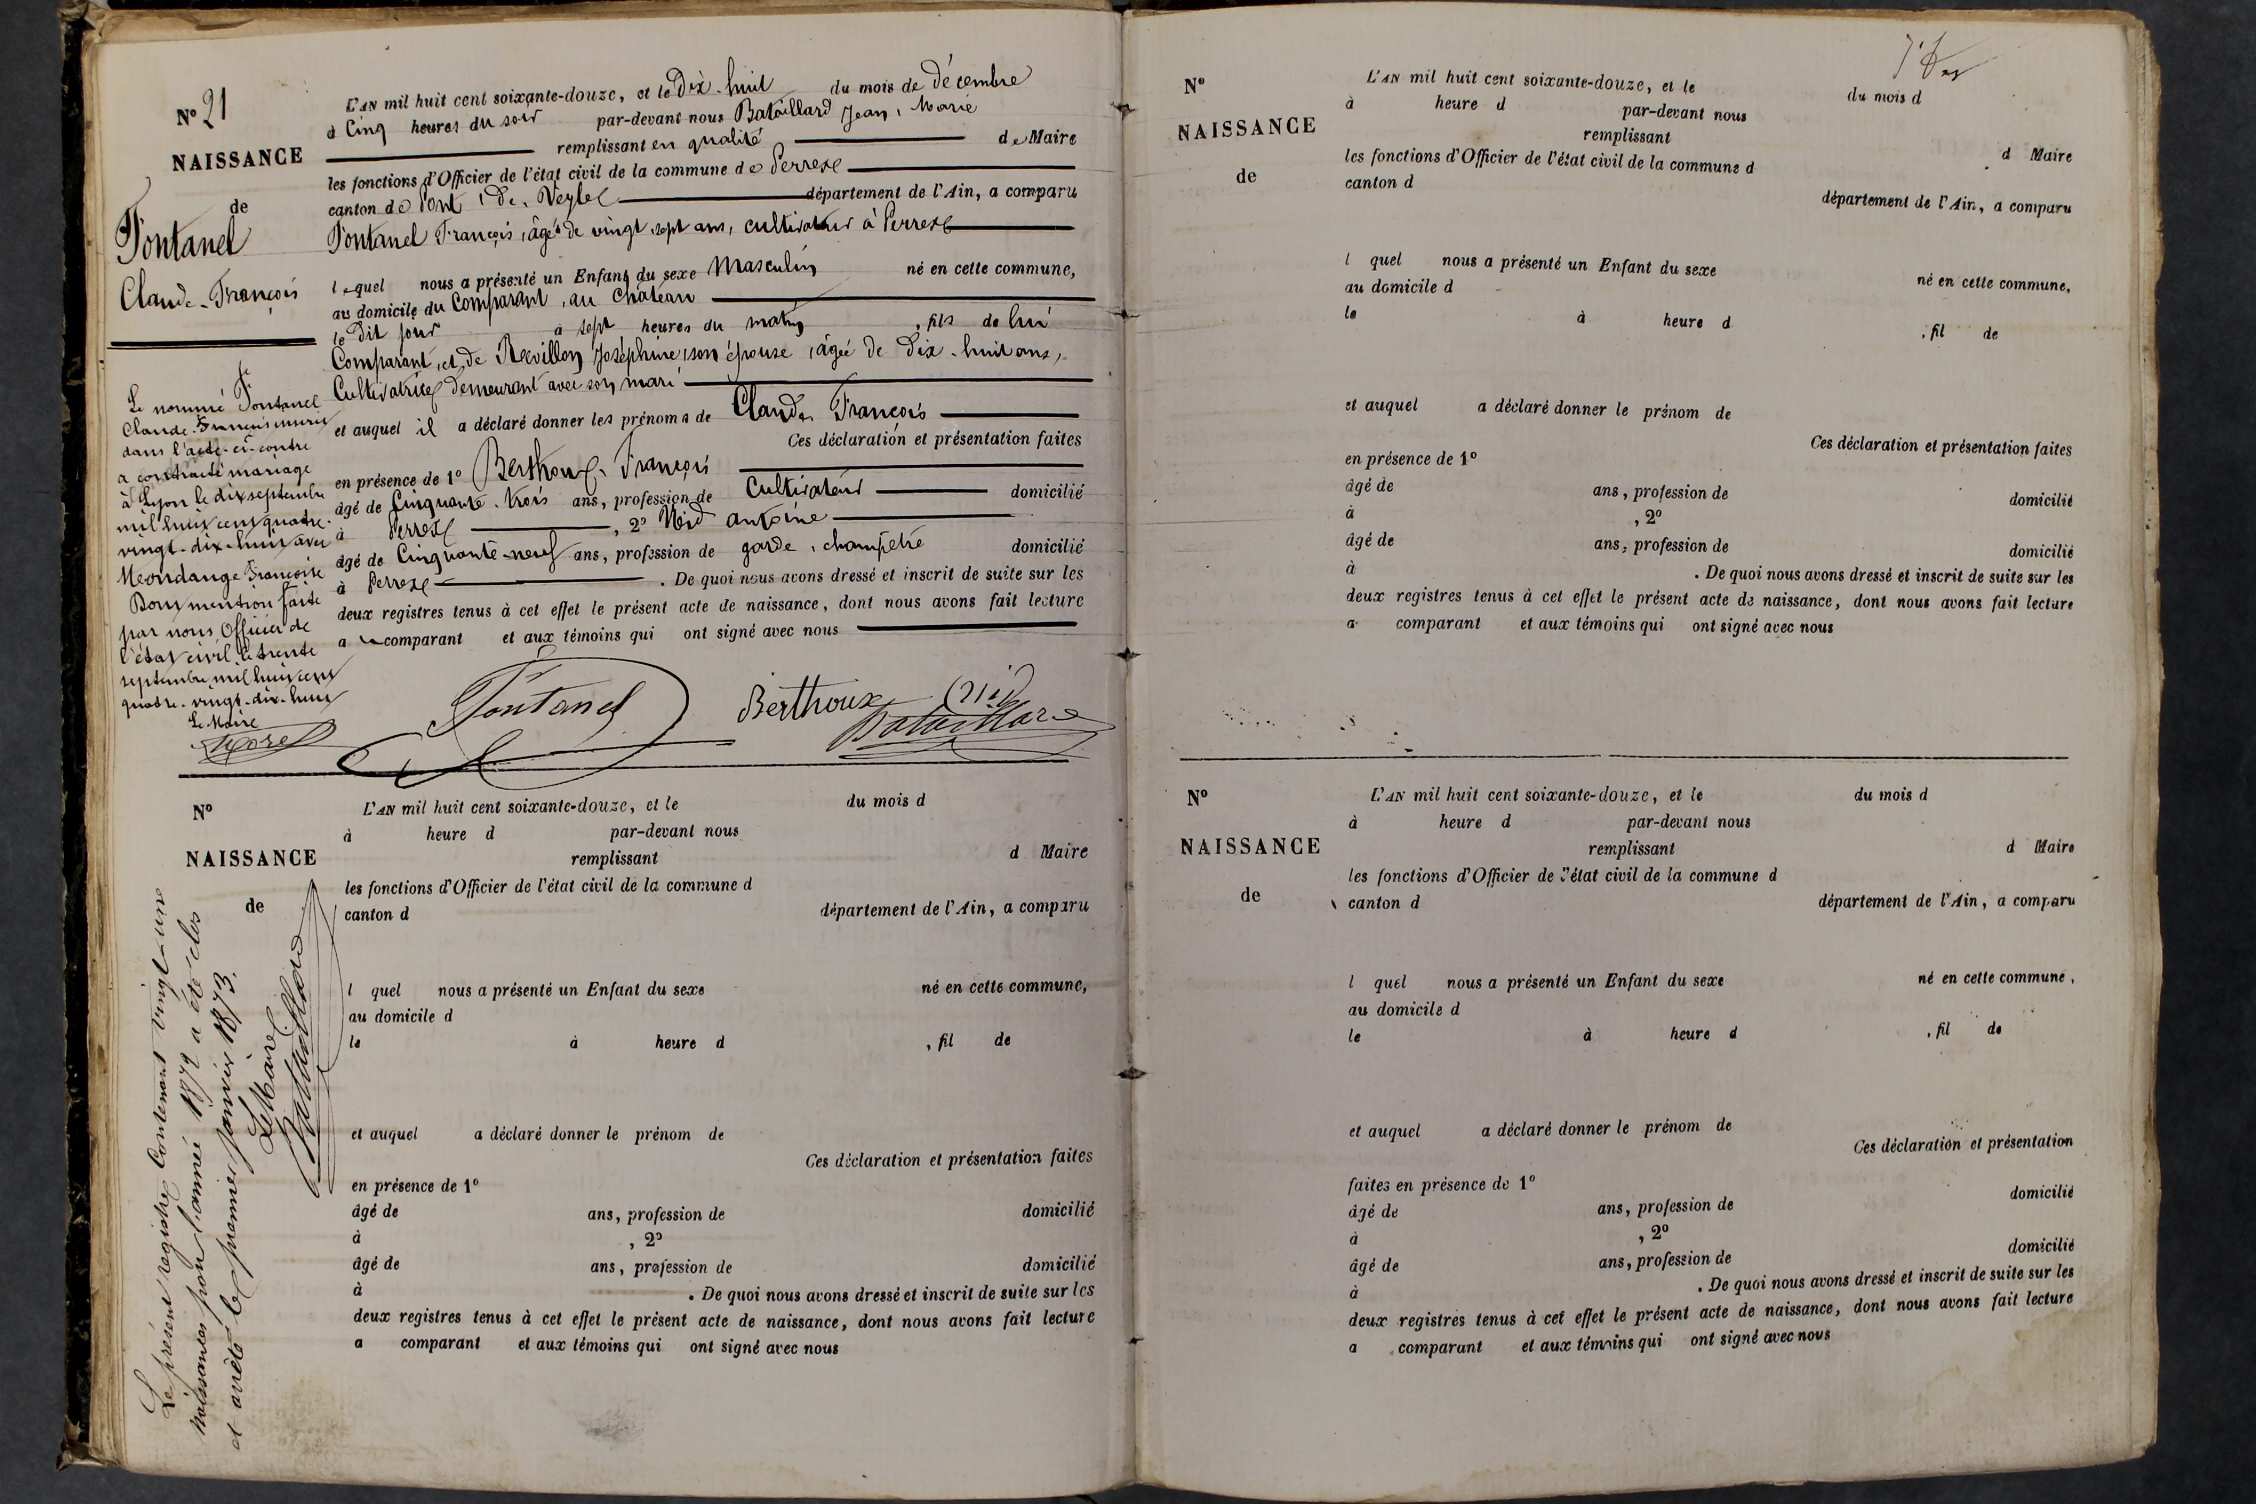 N° 21
NAISSANCE
de
Fontanel
Claude-François
L'AN mil huit cent soixante-douze, et le Dix-huit du mois de Décembre
à Cinq heures du soir par-devant nous Bataillard Jean, Marie
remplissant en qualité de Maire
les fonctions d'Officier de l'état civil de la commune de Perrex
canton de Pont de Veyle département de l'Ain, a comparu
Fontanel François, âgé de vingt sept ans, cultivateur à Perrex
lequel nous a présenté un Enfant du sexe Masculin né en cette commune,
au domicile du Comparant, au château
le Dit jour à sept heures du matin, fils de lui
Comparant, et de Revillon Joséphine, son épouse, âgée de Dix-huit ans,
Cultivatrice demeurant avec son mari
et auquel il a déclaré donner les prénoms de Claude François
Ces déclaration et présentation faites
en présence de 1° Berthoux François
âgé de Cinquante-trois ans, profession de Cultivateur domicilié
à Perrex, 2° Nid antoine
âgé de Cinquante-neuf ans, profession de garde, champêtre domicilié
à Perrex. De quoi nous avons dressé et inscrit de suite sur les
deux registres tenus à cet effet le présent acte de naissance, dont nous avons fait lecture
au comparant et aux témoins qui ont signé avec nous
Fontanel Berthoux Nid
Bataillard
Le nommé Fontanel
Claude-François inscrit
dans l'acte-ci-contre
a contracté mariage
à Lyon le dix septembre
mil huit cent quatre-
vingt-dix-huit avec
Meondange Françoise
Dont mention faite
par nous Officier de
l'état civil, le trente
septembre mil huit cent
quatre-vingt-dix-huit
Le Maire
Morel
N°
NAISSANCE
de
L'AN mil huit cent soixante-douze, et le du mois d
à heure d par-devant nous
remplissant d Maire
les fonctions d'Officier de l'état civil de la commune d
canton d département de l'Ain, a comparu
l quel nous a présenté un Enfant du sexe né en cette commune,
au domicile d
le à heure d , fil de
et auquel a déclaré donner le prénom de
Ces déclaration et présentation faites
en présence de 1°
âgé de ans, profession de domicilié
à , 2°
âgé de ans, profession de domicilié
à . De quoi nous avons dressé et inscrit de suite sur les
deux registres tenus à cet effet le présent acte de naissance, dont nous avons fait lecture
a comparant et aux témoins qui ont signé avec nous
Le présent registre Contenant vingt-une
Naissances pour l'année 1872 a été clos
et arrêté le premier janvier 1873.
Le Maire
Bataillard
N°
NAISSANCE
de
L'AN mil huit cent soixante-douze, et le du mois d
à heure d par-devant nous
remplissant
les fonctions d'Officier de l'état civil de la commune d d Maire
canton d département de l'Ain, a comparu
l quel nous a présenté un Enfant du sexe né en cette commune,
au domicile d
le à heure d , fil de
et auquel a déclaré donner le prénom de
Ces déclaration et présentation faites
en présence de 1°
âgé de ans, profession de domicilié
à , 2°
âgé de ans, profession de domicilié
à . De quoi nous avons dressé et inscrit de suite sur les
deux registres tenus à cet effet le présent acte de naissance, dont nous avons fait lecture
a comparant et aux témoins qui ont signé avec nous
N°
NAISSANCE
de
L'AN mil huit cent soixante-douze, et le du mois d
à heure d par-devant nous
remplissant d Maire
les fonctions d'Officier de l'état civil de la commune d
canton d département de l'Ain, a comparu
l quel nous a présenté un Enfant du sexe né en cette commune,
au domicile d
le à heure d , fil de
et auquel a déclaré donner le prénom de
Ces déclaration et présentation
faites en présence de 1°
âgé de ans, profession de domicilié
à , 2°
âgé de ans, profession de domicilié
à . De quoi nous avons dressé et inscrit de suite sur les
deux registres tenus à cet effet le présent acte de naissance, dont nous avons fait lecture
a comparant et aux témoins qui ont signé avec nous